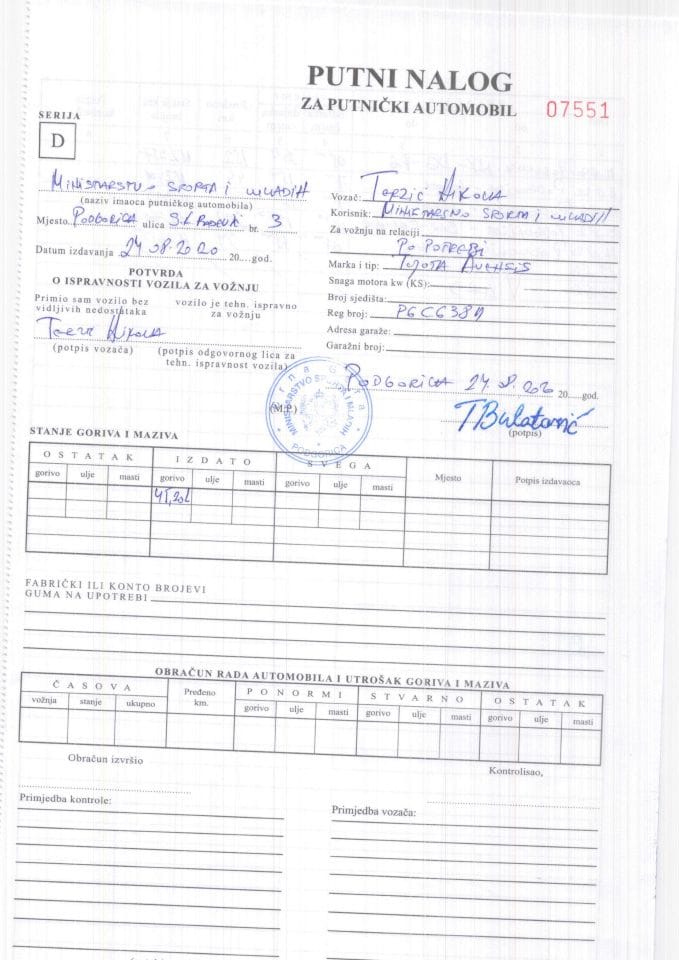 PUTNI NALOG
ZA PUTNIČKI AUTOMOBIL 07551
SERIJA
D
MINISTARSTVO SPORTA I MLADIH
(naziv imaoca putničkog automobila)
Mjesto. PODGORICA ulica S.K. br. 3
Datum izdavanja 24 08.2020 20....god.
POTVRDA
O ISPRAVNOSTI VOZILA ZA VOŽNJU
Primio sam vozilo bez vidljivih nedostataka
vozilo je tehn. ispravno za vožnju
Nikola
(potpis vozača)
(potpis odgovornog lica za tehn. ispravnost vozila)
Vozač: Terzić Nikola
Korisnik: MINISTARSTVO SPORTA I MLADIH
Za vožnju na relaciji
PO POTREBI
Marka i tip: TOJOTA AVENSIS
Snaga motora kw (KS):
Broj sjedišta:
Reg broj: PGCG38
Adresa garaže:
Garažni broj:
PODGORICA 24.08. 20....god.
(M.P.)
Crna Gora
MINISTARSTVO SPORTA I MLADIH
PODGORICA
TBulatović
(potpis)
STANJE GORIVA I MAZIVA
OSTATAK IZDATO SVEGA Mjesto Potpis izdavaoca
gorivo ulje masti gorivo ulje masti gorivo ulje masti
41,20L
FABRIČKI ILI KONTO BROJEVI
GUMA NA UPOTREBI
OBRAČUN RADA AUTOMOBILA I UTROŠAK GORIVA I MAZIVA
ČASOVA Pređeno km. PO NORMI STVARNO OSTATAK
vožnja stanje ukupno gorivo ulje masti gorivo ulje masti gorivo ulje masti
Obračun izvršio
Kontrolisao,
Primjedba kontrole:
Primjedba vozača: